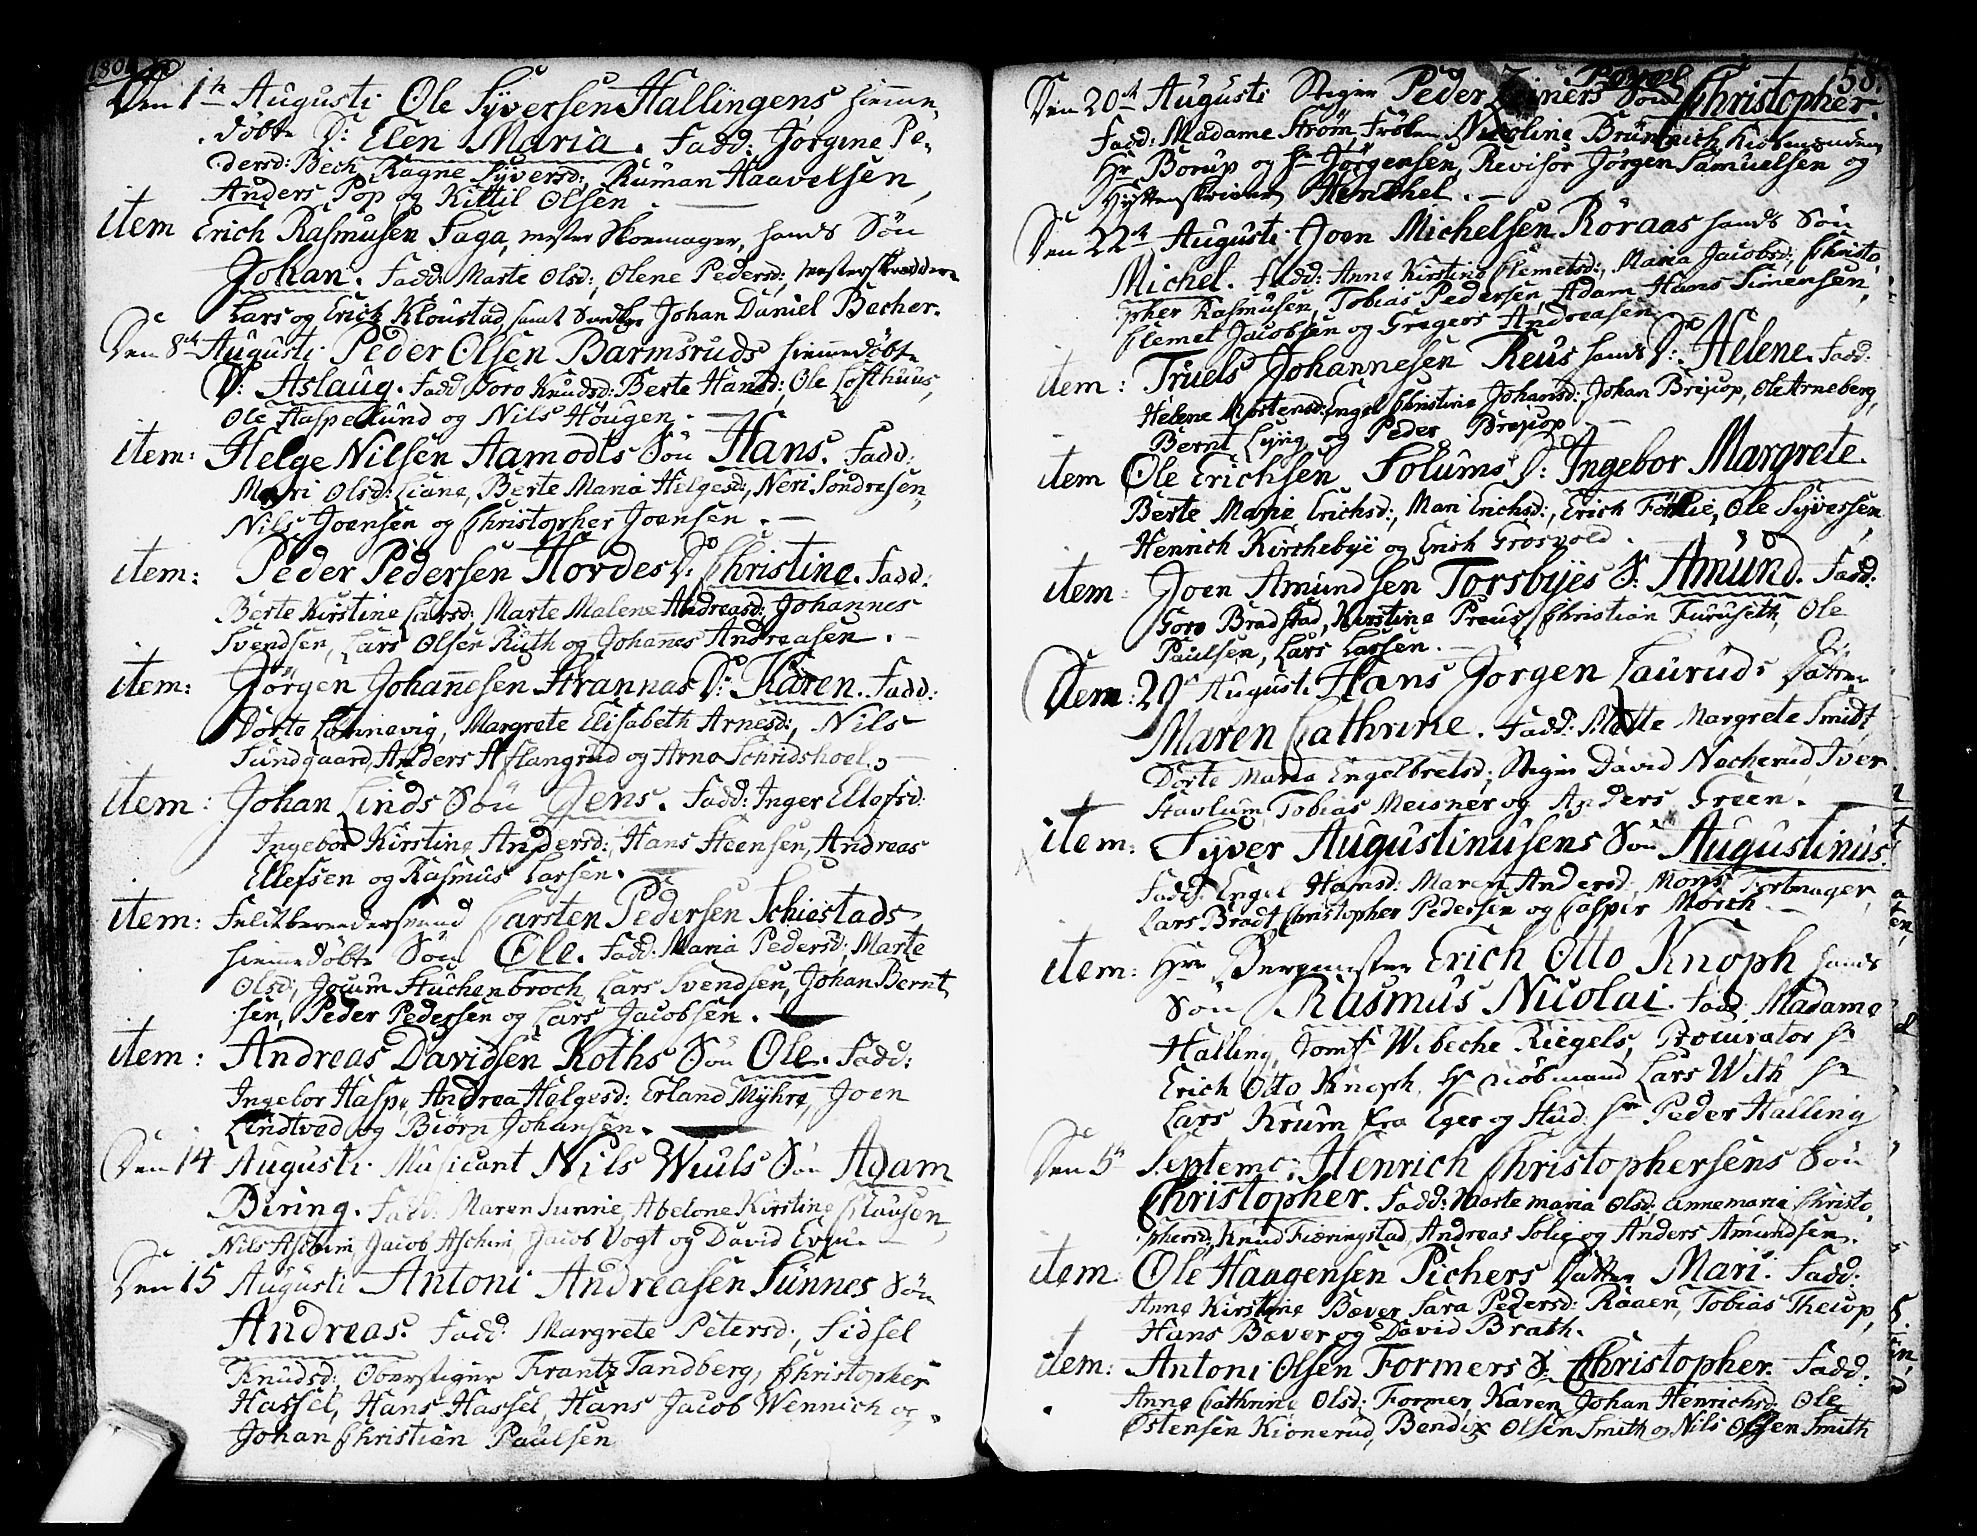 180
Den 1te Augusti Ole Syversen Hallingens hiemme
døbte D: Elen Maria. Fadd: Jørgine Pe-
dersd: Bech, Ragne Syversd:, Ruman Haavelsen,
Anders Pop og Kittil Olsen. —
item Erich Rasmusen Faga, mester Skoemager, hands Søn
Johan. Fadd: Marte Olsd:, Olene Pedersd:,
Lars og Erich Kloustad, samt Johan Daniel Becher.
Den 8de Augusti Peder Olsen Barmsruds hiemmedøbte
D: Aslaug. Fadd: Goro Knudsd: Berte Hansd:, Ole Lofthuus,
Ole Haspelund og Nils Hougen. —
item: Helge Nilsen Aamodts Søn Hans. Fadd:
Mari Olsd: Liane, Berte Maria Helgesd:, Neri Sondresen,
Nils Joensen og Christopher Joensen. —
item: Peder Pedersen Hordes D: Christine. Fadd:
Berte Kirstine Larsd: Marte Malene Andreasd: Johannes
Svendsen, Lars Olsen Ruth og Johannes Andreasen. —
item: Jörgen Johannesen Strannas D: Karen. Fadd:
Dorte Lonnevig, Margrete Elisabeth Arnesd:, Nils
Sundgaard, Anders Aslangrud og Arne Schridshoel. —
item: Johan Linds Søn Jens. Fadd: Inger Ellefsd:
Ingebor Kirstine Andersd:, Hans Steensen, Andreas
Ellefsen og Rasmus Larsen. —
item: Carsten Pedersen Schiestads
hiemmedøbte Søn Ole. Fadd: Maria Pedersd:, Marte
Olsd:, Jocum Stuchenbroch, Lars Svendsen, Johan Bernt
sen, Peder Pedersen og Lars Jacobsen. —
item: Andreas Davidsen Koths Søn Ole. Fadd:
Ingebor Haspe, Andrea Helgesd: Erland Myhre, Joen
Lindtved og Biörn Johansen. —
Den 14 Augusti Musicant Nils Wiuls Søn Adam
Biring. Fadd: Maren Sunnie, Abelone Kirstine Clausen,
Nils Aschim, Jacob Aschim, Jacob Vogt og David Evju. —
Den 15 Augusti Antoni Andreasen Sunnes Søn
Andreas. Fadd: Margrete Petersd:, Sidsel
Knudsd: Oberstiger Frantz Tandberg, Christopher
Hassel, Hans Hassel, Hans Jacob Wennich og
Johan Christian Paulsen
58.
Den 20de Augusti Stiger Peder Søn Christopher.
Fadd: Madame Strøm, Frøken Nicoline Brünnich,
Hr Borup og Hr Jørgensen, Revisor Jörgen Samuelsen og
Hytteskriver Henchel. —
Den 22de Augusti Joen Michelsen Röraas hands Søn
Michel. Fadd: Anne Kirstine Clemetsd:, Maria Jacobsd:, Christo
pher Rasmusen, Tobias Pedersen, Adam Hans Simensen,
Clemet Jacobsen og Gregers Andreasen. —
item: Truels Johannesen Reus hands D: Helene. Fadd:
Helene Mortensd: Engel Christine Johansd:, Johan Brejup, Ole Arneberg,
Bernt Lyng og Peder Brejup. —
item Ole Erichsen Solums D: Ingebor Margrete.
Berte Marie Erichsd:, Mari Erichsd:, Erich Förlie, Ole Syversen
Henrich Kirchebye og Erich Grosvold. —
item: Joen Amundsen Torsbyes S: Amund. Fadd:
Goro Bradstad, Kirstine Preus, Christian Furuseth, Ole
Paulsen, Lars Larsen. —
Item: 29de Augusti Hans Jörgen Lauruds Datter
Maren Cathrine. Fadd: Mette Margrete Smidt,
Dorte Maria Engelbretsd:, Stiger David Necherud, Iver
Stavlum, Tobias Meisner og Anders Green.
item: Syver Augustinusens Søn Augustinus.
Fadd: Engel Hansd: Maren Andersd: Mons Fortmager,
Lars Bradt, Christopher Pedersen og Casper Morch. —
item: Hr Bergmester Erich Otto Knoph hands
Søn Rasmus Nicolai. Fadd: Madame
Halling, Jomfr Wibeche Riegels, Procurator Hr
Erich Otto Knoph, Hr Kiöbmand Lars With Hr
Lars Krum fra Eger og Stud: Hr Peder Halling
Den 5te Septembr: Henrich Christophersens Søn
Christopher. Fadd: Marte Maria Olsd: Annemaria Christo,
phersd:, Knud Fiæringstad, Andreas Solie og Anders Amundsen.
item Ole Haagensen Pichers Datter Mari. Fadd:
Anne Kirstine Bæver, Sara Pedersd: Raaen, Tobias Theiop,
Hans Bæver og David Brath.
item: Antoni Olsen Formers S: Christopher. Fadd:
Anne Cathrine Olsd: Former, Karen Johan Henrichsd: Ole
Østensen Kionerud, Bendix Olsen Smith og Nils Olsen Smith